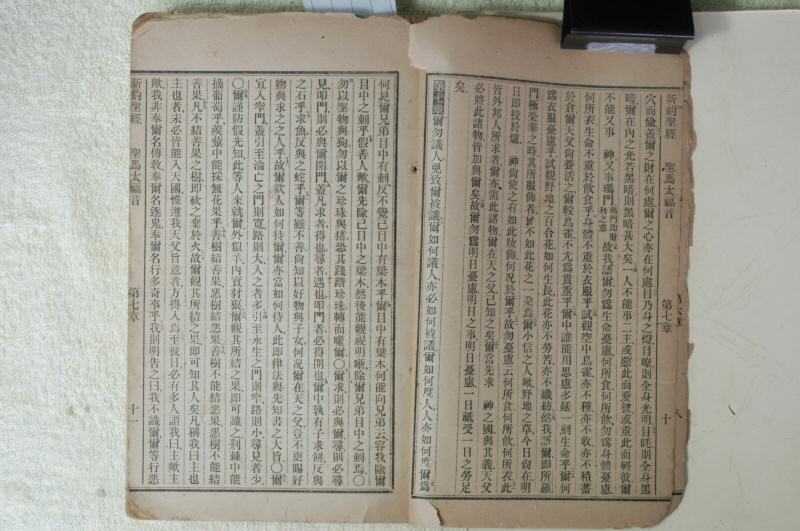 新約聖經　聖馬太福音　第七章　十
穴而偸、蓋爾之財在何處、爾之心亦在何處、目乃身之燈、目瞭則全身光明、目眊則全身黑
暗、爾在內之光若黑暗、則黑暗甚大矣、一人不能事二主、或惡此而愛彼、或重此而輕彼、爾
不能又事　神又事瑪門、故我語爾、勿爲生命憂慮何所食何所飲、勿爲身體憂慮
何所衣、生命不重於飲食乎、身體不重於衣服乎、試觀空中鳥雀、亦不種、亦不收、亦不積蓄
於倉、爾天父尙養活之、爾較鳥雀不尤爲貴重乎、爾中誰能用思慮多延一刻生命乎、何
爲衣服憂慮乎、試觀野地之百合花如何生長、此花亦不勞苦、亦不織紡、然我語爾、卽所羅
門極榮華之時、其所服飾者、猶不如此花之一朶焉、爾小信之人歟、野地之草、今日尙在、明
日卽投於爐、　神尙使之有如此妝飾、何况於爾乎、故勿憂慮云、何所食、何所飲、何所衣、此
皆外邦人所求者、爾亦需此諸物、爾在天之父已知之矣、爾當先求　神之國與其義、天父
必將此諸物皆加與爾矣、故爾勿爲明日憂慮、明日之事、明日憂慮、一日祇受一日之勞足
矣、
第七章　爾勿議人、免致爾被議、爾如何議人、亦必如何被議、爾如何度人、人亦如何度爾、爲
何見爾兄弟目中有刺、反不覺己目中有梁木乎、爾目中有梁木、何能向兄弟云、容我除爾
目中之刺乎、假善人歟、爾先除己目中之梁木、然後能觀視明晰、除爾兄弟目中之刺焉、〇
勿以聖物與狗、勿以爾之珍珠與猪、恐其踐踏珍珠、轉而噬爾、〇爾求、則必與爾、尋、則必尋
見、叩門、則必與爾開門、蓋凡求者得也、尋者遇也、叩門者必得開也、爾中孰有子求餠反與
之石乎、求魚反與之蛇乎、爾等雖不善、尙知以好物與子女、何况爾在天之父、豈不更賜好
物與求之之人乎、故爾欲人如何待爾、爾亦當如何待人、此卽律法與先知書之大旨、〇爾
宜入窄門、蓋引至淪亡之門則寬、路則大、入之者多、引至永生之門則窄、路則小、尋見者少、
〇爾謹防假先知、此等人來就爾、外似羊、內實豺狼、爾觀其所結之果、卽可識之、荆棘中能
摘葡萄乎、蒺藜中能採無花果乎、善樹結善果、惡樹結惡果、善樹不能結惡果、惡樹不能結
善果、凡不結善果之樹、卽砍之棄於火、故爾觀其所結之果、卽可知其人矣、凡稱我曰主也
主也者、未必皆能入天國、惟遵我天父旨意者方得入焉、至彼日必有多人謂我曰、主歟主
歟、我非奉爾名傳敎、奉爾名逐鬼、奉爾名行多奇事乎、我則明告之曰、我不識爾、爾等行惡
新約聖經　聖馬太福音　第七章　十一